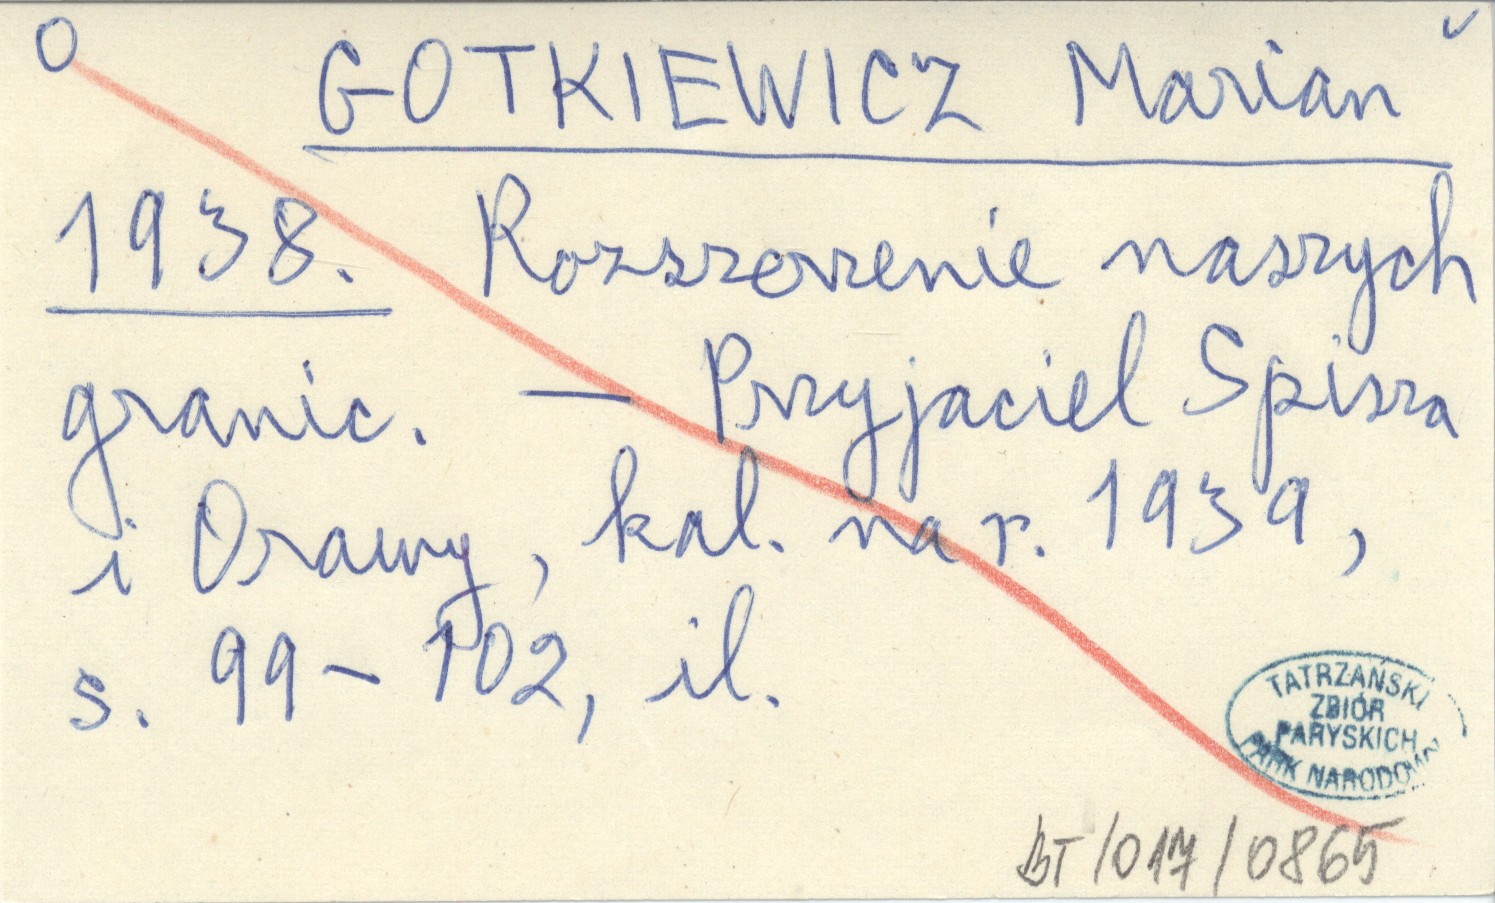 O
GOTKIEWICZ Marian
1938. Rozszerzenie naszych
granic. — Przyjaciel Spisza
i Orawy, kal. na r. 1939,
s. 99–102, il.
TATRZAŃSKI
ZBIÓR
PARYSKICH
PARK NARODOWY
BT/017/0865